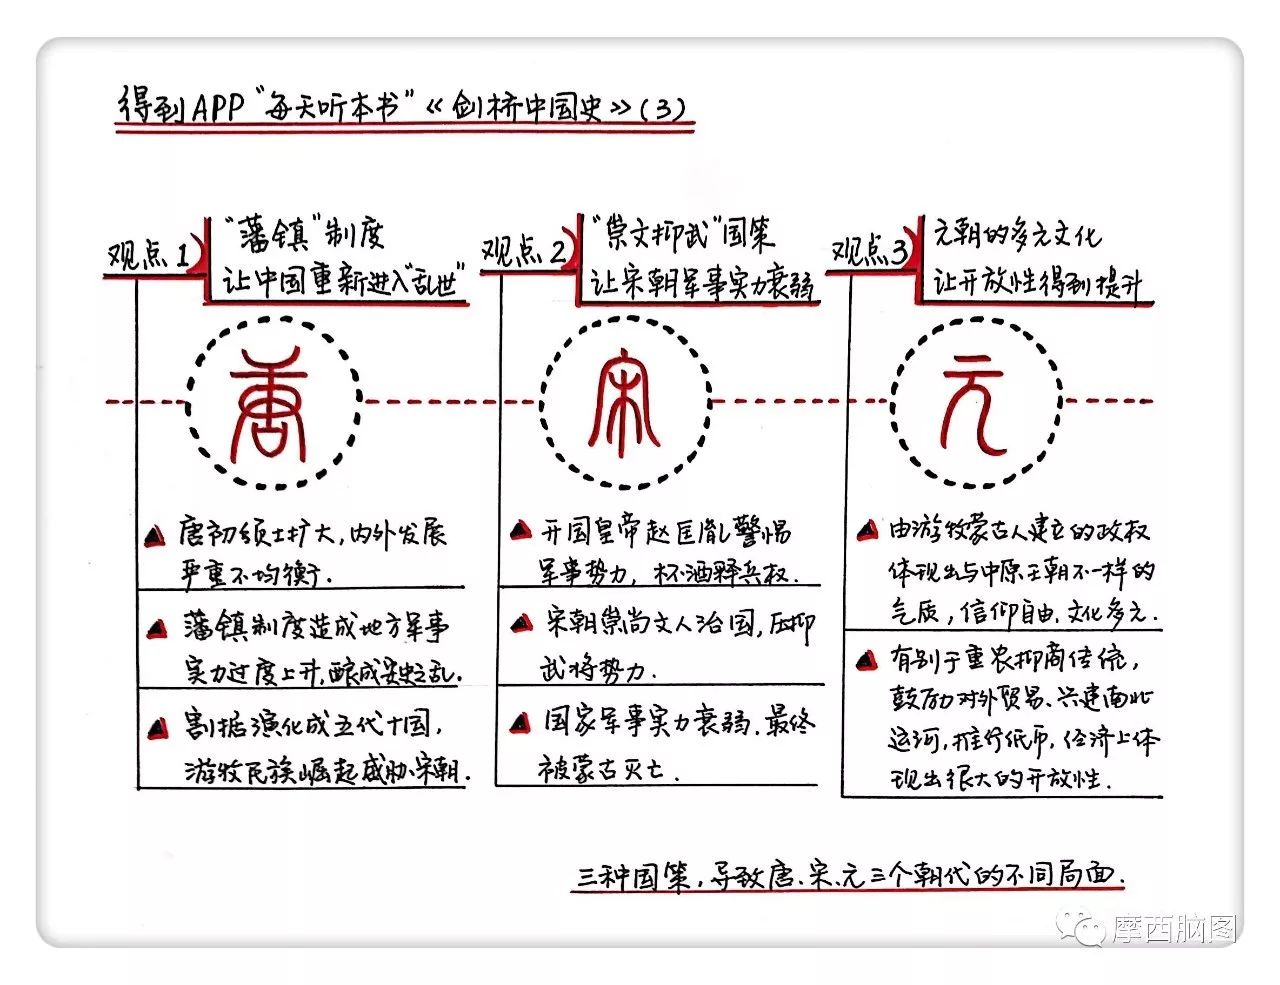 得到APP“每天听本书”《剑桥中国史》(3)
观点1
“藩镇”制度
让中国重新进入“乱世”
唐
唐初领土扩大,内外发展
严重不均衡.
藩镇制度造成地方军事
实力过度上升,酿成安史之乱.
割据演化成五代十国,
游牧民族崛起威胁宋朝.
观点2
“崇文抑武”国策
让宋朝军事实力衰弱
宋
开国皇帝赵匡胤警惕
军事势力,杯酒释兵权.
宋朝崇尚文人治国,压抑
武将势力.
国家军事实力衰弱.最终
被蒙古灭亡.
观点3
元朝的多元文化
让开放性得到提升
元
由游牧蒙古人建立的政权
体现出与中原王朝不一样的
气质,信仰自由.文化多元.
有别于重农抑商传统,
鼓励对外贸易、兴建南北
运河,推行纸币,经济上体
现出很大的开放性.
三种国策,导致唐、宋、元三个朝代的不同局面.
摩西脑图